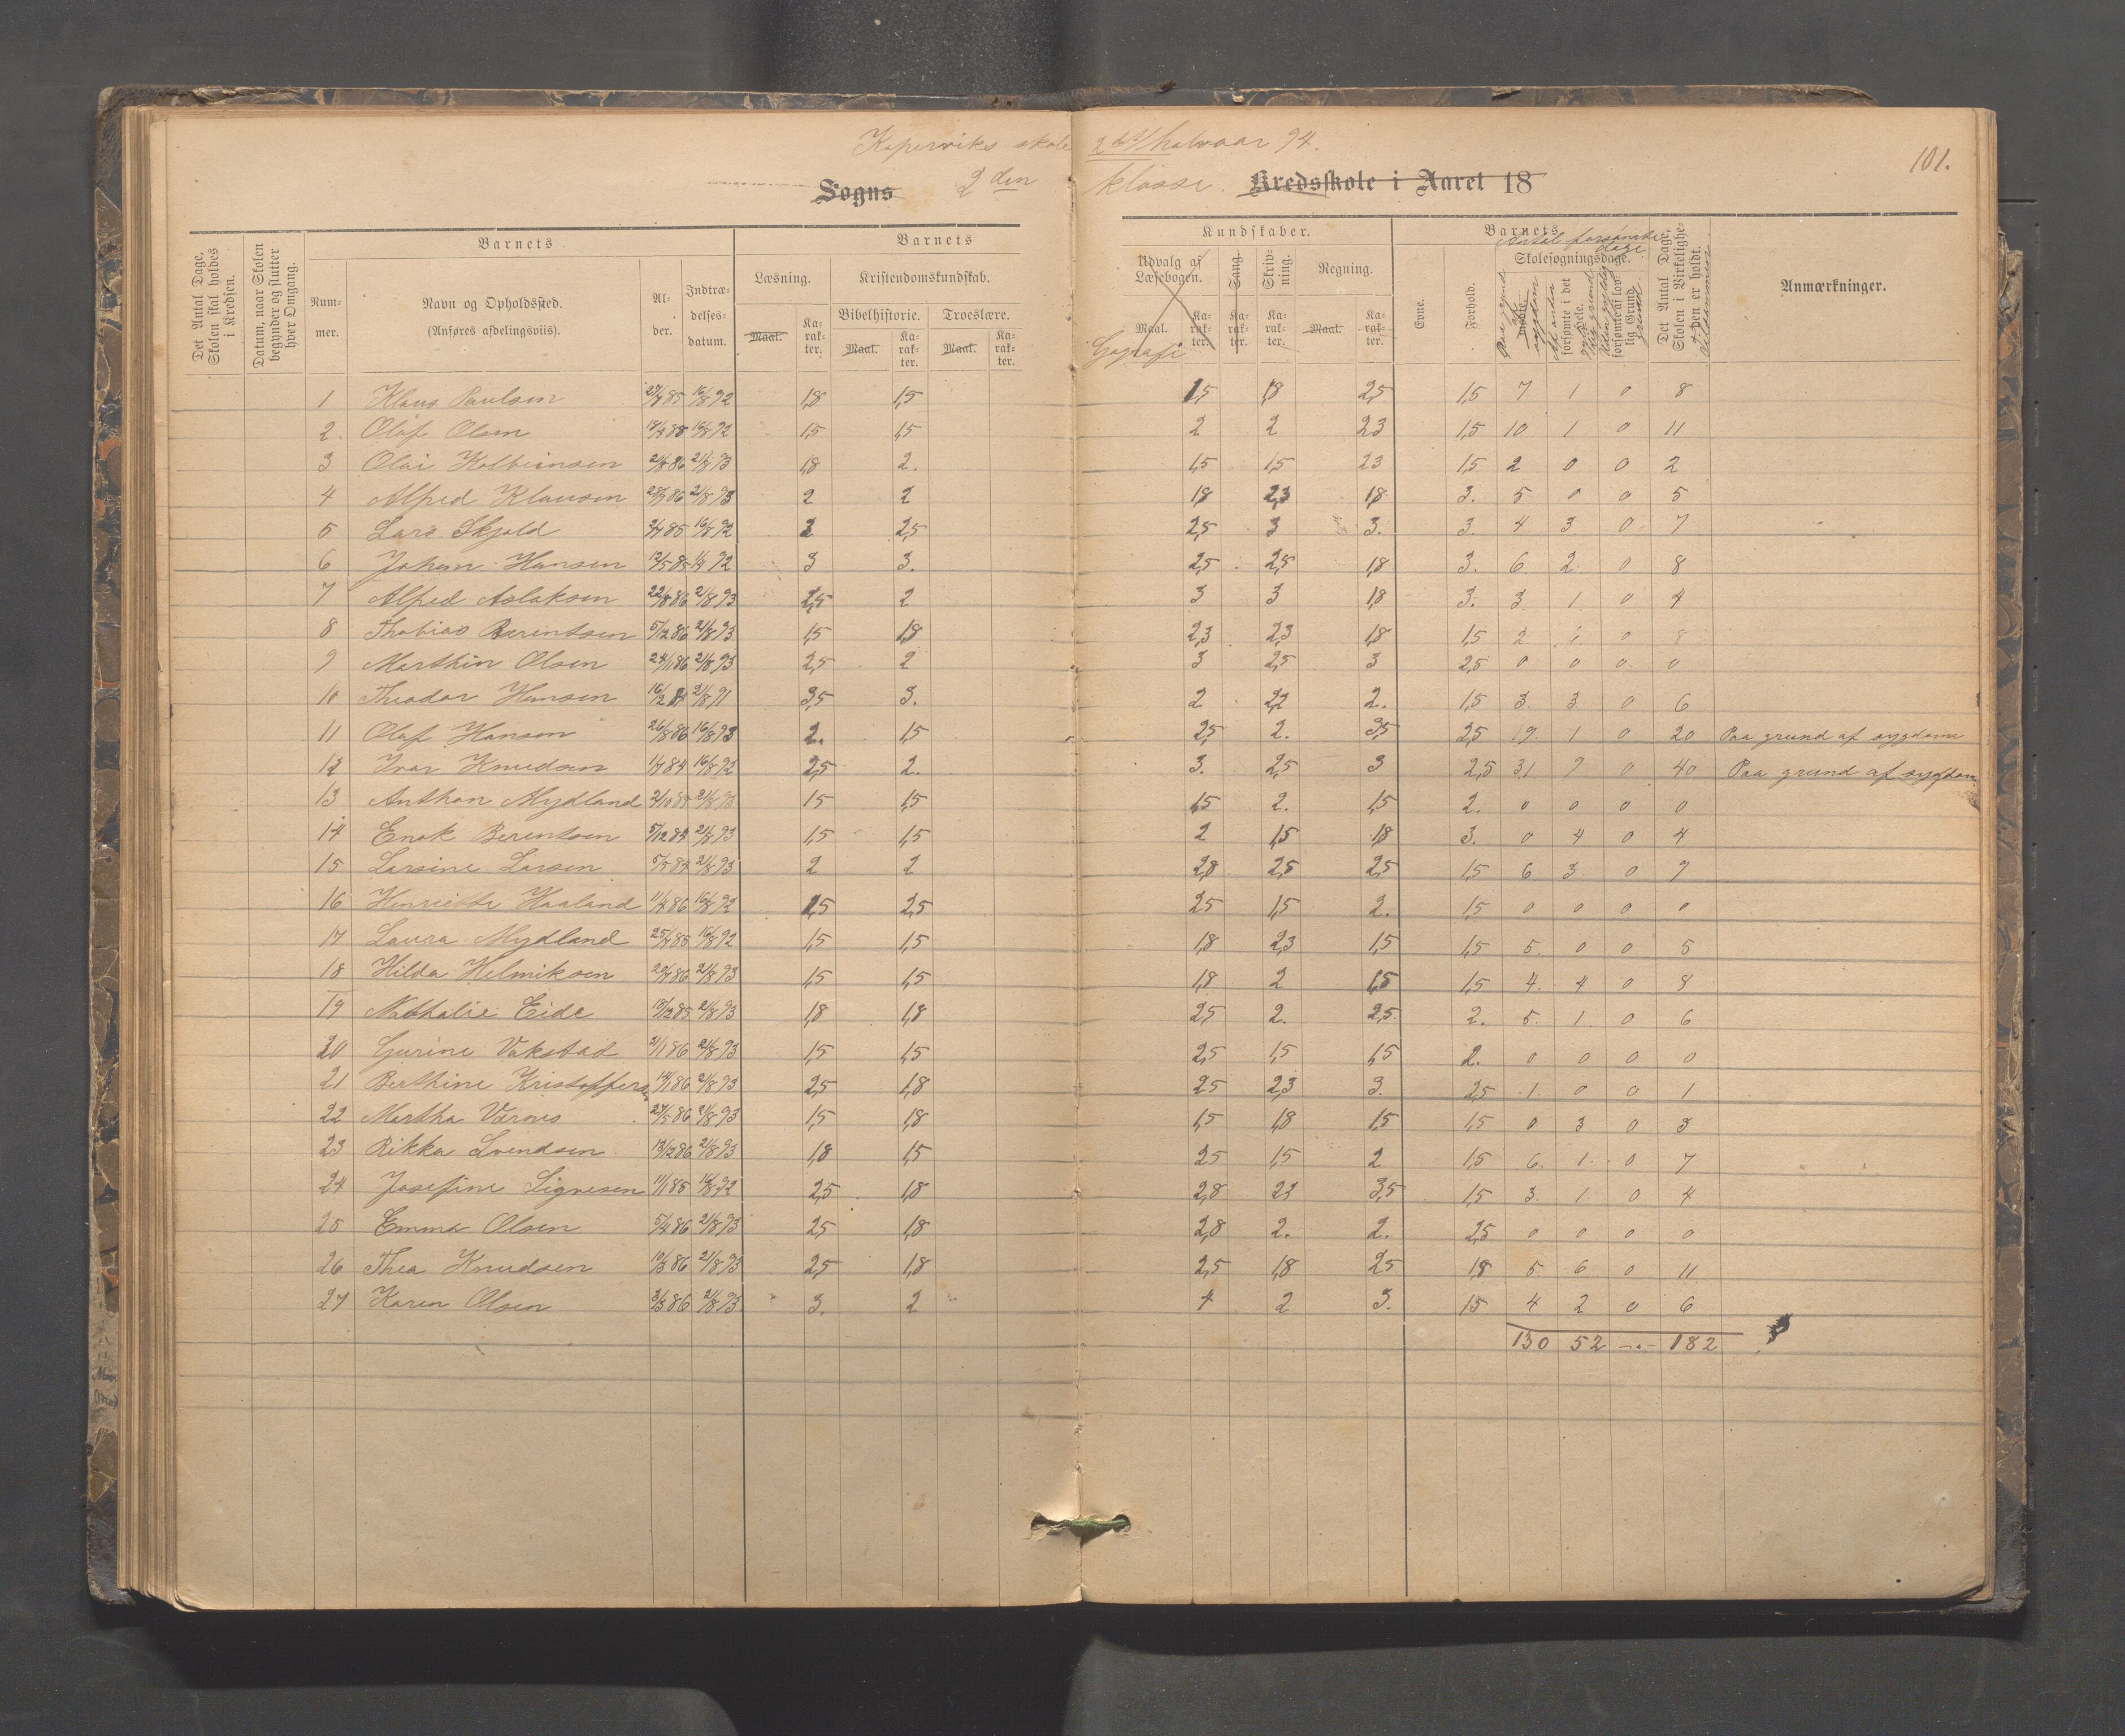 Kopervik skole 2det halvaar 94.
101.
Sogns 2den klasse. Kredsskole i Aaret 18
Det Antal Dage, Skolen skal holdes i Kredsen.
Datum, naar Skolen begynder og slutter hver Omgang.
Barnets
Num-mer.
Navn og Opholdssted.
(Anføres afdelingsviis).
Al-der.
Indtræ-delses-datum.
Barnets
Læsning.
Maal.
Ka-rak-ter.
Kristendomskundskab.
Bibelhistorie.
Maal.
Ka-rak-ter.
Troeslære.
Maal.
Ka-rak-ter.
Kundskaber.
Udvalg af Læsebogen.
Maal.
Ka-rak-ter.
Gografi
Sang.
Ka-rak-ter.
Skriv-ning.
Ka-rak-ter.
Regning.
Maal.
Ka-rak-ter.
Barnets
Evne.
Forhold.
Antal forsømte dage
Skolesøgningsdage.
Paa grund af sygdom
forsømte i det hele.
forsømte af lovlig Grund
Det Antal Dage, Skolen i Virkelighe-den er holdt.
Anmærkninger.
1 Klaus Paulsen 27/4 85 16/8 92 1,8 1,5 1,5 1,8 2,5 1,5 7 1 0 8
2. Olaf Olsen 16/8 92 1,5 1,5 2 2 23 1,5 10 1 0 11
3 Olai Kolbeinsen 21/8 93 1,8 2. 1,5 1,5 23 1,5 2 0 0 2
4 Alfred Klausen 21/8 93 2 2 1,8 2,3 1,8 3. 5 0 0 5
5 Lars Skjold 16/8 92 2 2,5 2,5 3 3. 3. 4 3 0 7
6 Johan Hansen 3 3. 2,5 2,5 1,8 3. 6 2 0 8
7 Alfred Aslaksen 22/8 86 21/8 93 2,5 2 3 3 1,8 3. 3 1 0 4
8 Thobias Berentsen 5/12 86 21/8 93 1,5 1,8 2,3 2,3 1,8 1,5 2 6 0 8
9 Marthin Olsen 24/11 86 21/8 93 2,5 2 3 2,5 3 2,5 0 0 0 0
10 Theodor Hansen 21/8 91 3,5 3. 2 2,2 2. 1,5 3 3 0 6
11 Olaf Hansen 26/8 86 16/8 93 2. 1,5 2,5 2. 3,5 2,5 19 1 0 20 Paa grund af sygdom
12 Ivar Knudsen 16/8 92 2,5 2. 3. 2,5 3 2,5 31 9 0 40 Paa grund af sygdom
13 Anthon Mydland 21/8 93 1,5 1,5 1,5 2. 1,5 2. 0 0 0 0
14 Enok Berentsen 21/8 93 1,5 1,5 2 1,5 1,8 3. 0 4 0 4
15 Larsine Larsen 21/8 93 2 2 2,8 2,5 2,5 1,5 6 3 0 9
16 Henriette Haaland 16/8 92 1,5 2,5 2,5 1,5 2. 1,5 0 0 0 0
17 Laura Mydland 16/8 92 1,5 1,5 1,8 2,3 1,5 1,5 5 0 0 5
18 Hilda Helmiksen 21/8 93 1,5 1,5 1,8 2 1,5 1,5 4 4 0 8
19 Nathalie Eide 21/8 93 1,8 1,8 2,5 2. 2,5 2. 5 1 0 6
20 Gurine Vikstad 21/1 86 21/8 93 1,5 1,5 2,5 1,5 1,5 2. 0 0 0 0
21 Berthine Kristoffersen 21/8 93 2,5 1,8 2,5 2,3 3. 2,5 1 0 0 1
22 Martha Varnes 27/5 86 21/8 93 1,5 1,8 1,5 1,8 1,5 1,5 0 3 0 3
23 Rikka Svendsen 13/12 86 21/8 93 1,8 1,5 2,5 1,5 2 1,5 6 1 0 7
24 Josefine Signesen 11/1 85 16/8 92 2,5 1,8 2,8 23 3,5 1,5 3 1 0 4
25 Emma Olsen 5/4 86 21/8 93 2,5 1,8 2,8 2. 2. 2,5 0 0 0 0
26 Thea Knudsen 10/3 86 21/8 93 2,5 1,8 2,5 1,8 2,5 1,8 5 6 0 11
27 Karen Olsen 3/3 86 21/8 93 3. 2 4 2 3. 1,5 4 2 0 6
130 52 -.- 182